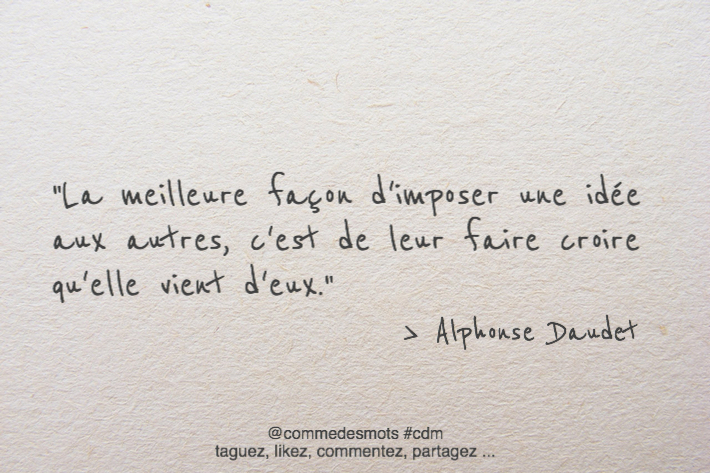 "La meilleure façon d'imposer une idée
aux autres, c'est de leur faire croire
qu'elle vient d'eux."
> Alphonse Daudet
@commedesmots #cdm
taguez, likez, commentez, partagez ...